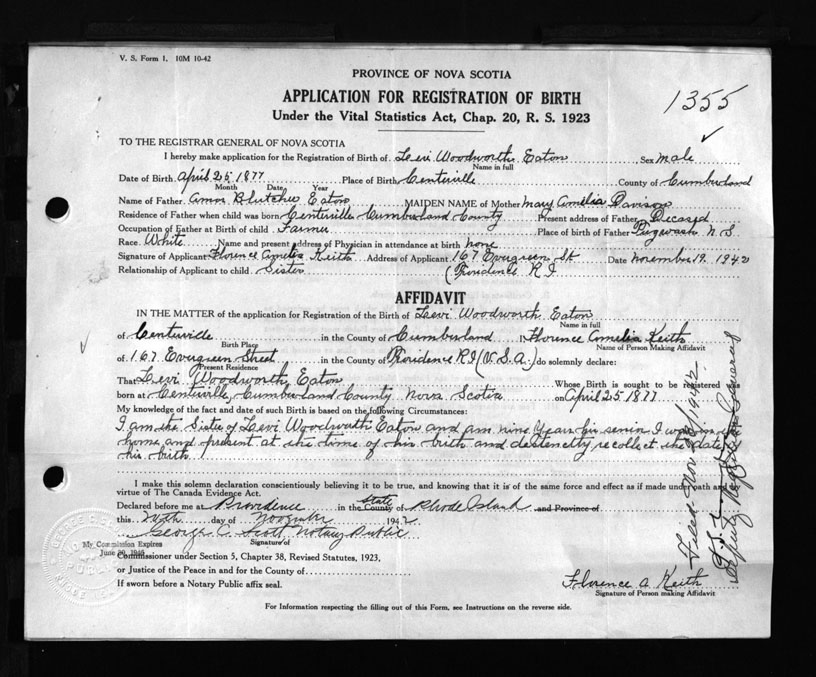 V. S. Form 1. 10M 10-42
PROVINCE OF NOVA SCOTIA
APPLICATION FOR REGISTRATION OF BIRTH
Under the Vital Statistics Act, Chap. 20, R. S. 1923
1355
TO THE REGISTRAR GENERAL OF NOVA SCOTIA
I hereby make application for the Registration of Birth of Levi Woodworth Eaton Sex male
Name in full
Date of Birth April 25 1877 Place of Birth Centerville County of Cumberland
Month Date Year
Name of Father Amos Eaton MAIDEN NAME of Mother Mary Amelia Davison
Residence of Father when child was born Centerville Cumberland County Present address of Father Decased
Occupation of Father at Birth of Child Farmer Place of birth of Father Pugwash N.S
Race White Name and present address of Physician in attendance at birth none
Signature of Applicant Florence Amelia Keith Address of Applicant 167 Evergreen St Date November 19 1942
Relationship of Applicant to child Sister (Providence R I
AFFIDAVIT
IN THE MATTER of the application for Registration of the Birth of Levi Woodworth Eaton
Name in full
of Centervile in the County of Cumberland Florence Amelia Keith
Birth Place Name of Person Making Affidavit
of 167 Evergreen Street in the County of Providence RI (U.S.A.) do solemnly declare:
Present Residence
That Levi Woodworth Eaton Whose Birth is sought to be registered was
born at Centerville, Cumberland County Nova Scotia on April 25 1877
My knowledge of the fact and date of such Birth is based on the following Circumstances:
I am the Sister of Levi Woodworth Eaton and am nine Years his senior I was in
home and present at the time of his birth and recollect the date
his birth
I make this solemn declaration conscientiously believing it to be true, and knowing that it is of the same force and effect as if made under oath and by
virtue of The Canada Evidence Act.
Declared before me at Providence in the County State of Rhode Island and Province of
this day of November 1942
George C. Scott Notary Public
Signature of
My Commission Expires
June 30, 1946
Commissioner under Section 5, Chapter 38, Revised Statutes, 1923,
or Justice of the Peace in and for the County of
If sworn before a Notary Public affix seal.
Florence A Keith
Signature of Person making Affidavit
For Information respecting the filling out of this Form, see Instructions on the reverse side.
Filed Nov 1942
Deputy Registrar General